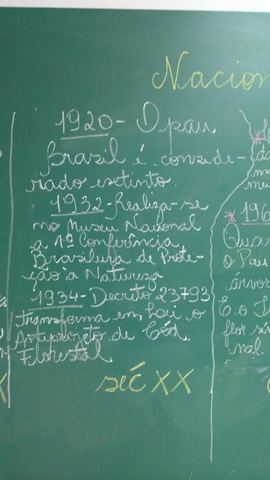 Nacion
1920 - O pau
Brasil é conside-
rado extinto.
1922 - Realiza-se
no Museu Nacional
a 1ª Conferência
Brasileira de Prote-
ção à Natureza
1934 - Decreto 23793
transforma em Lei o
Anteprojeto de Cód.
Florestal
séc XX
* 196
Qua
O Pau
árvor
E o I
flor sim
nal.